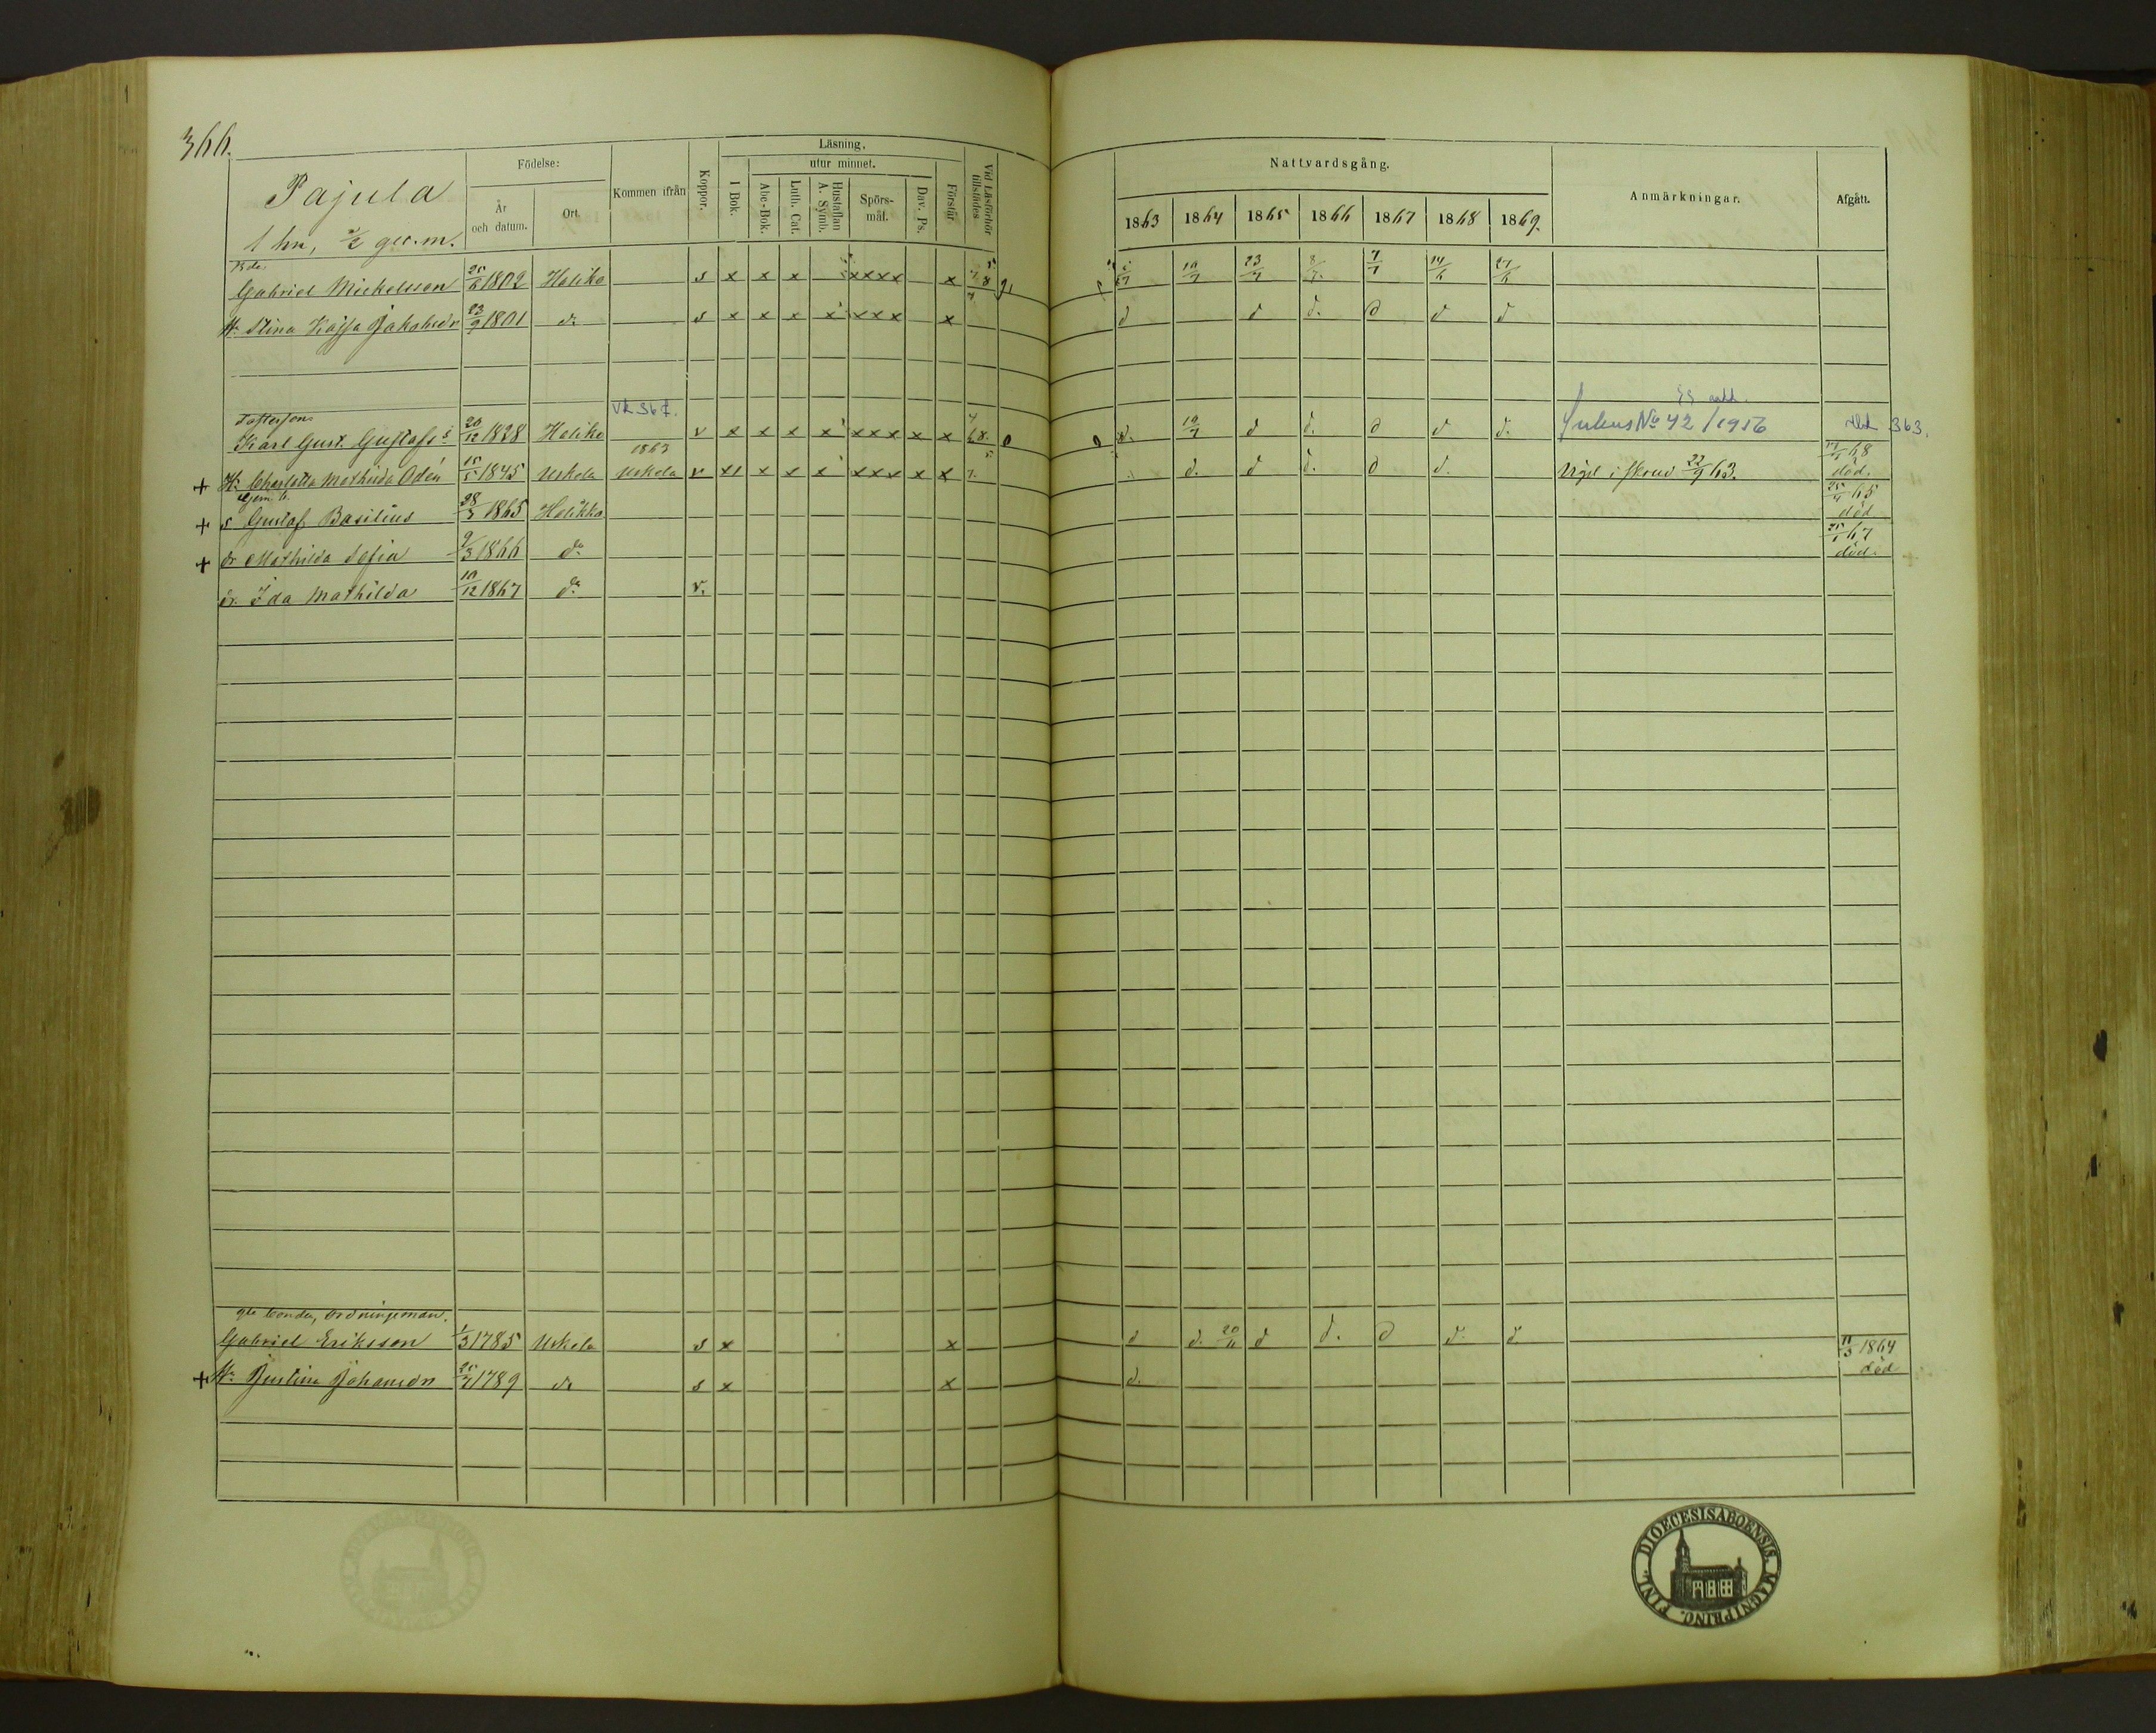 366.
Pajula
1 hn, 1/2 gec. m.
Födelse:
År och datum.
Ort.
Kommen ifrån
Koppor.
Läsning.
I Bok.
utur minnet.
Abc-Bok.
Luth. Cat.
Hustaflan A. Symb.
Spörs-mål.
Dav. Ps.
Förstår
Vid Läsförhör tillstädes
Nattvardsgång.
1863 1864 1865 1866 1867 1868 1869.
Anmärkningar.
Afgått.
Bde.
Gabriel Mickelsson 25/6 1802 Haliko s x x x xxxx x 5/7 10/7 23/7 8/7. 7/7 14/6 27/6
H. Stina Kajsa Jakobsdr 23/9 1801 do s x x x x xxx x d d d. d d d
Vk 367.
Karl Gust. Gustafs s 20/12 1838 Haliko v x x x x xxx x x 10/7 d d. d d d. Sukus No 42/1956 363.
+ H. Charlotta Mathilda Odén 15/5 1845 Uskela 1863 Uskela v x x x x xxx x x d. d d. d d. Vigd i skrud 22/9 63. 68 död.
+ s Gustaf Basilius 28/3 1865 Halikko 25/4 65 död
+ dr Mathilda Sofia 9/3 1866 do 67 död.
dr. Ida Mathilda 10/12 1867 do v.
gle bonden, Ordningsman.
Gabriel Eriksson 1/3 1785 Uskela s x x d d. 20/11 d d. d d. d.
+ H. Justina Johansdr 25/7 1789 do s x x d. 11/3 1864 död
FINL. DIOECESIS ABOENSIS. MAGNI PRINC.